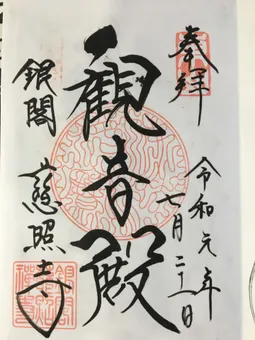 奉拝
令和元年
七月二十一日
観音殿
銀閣
慈照寺